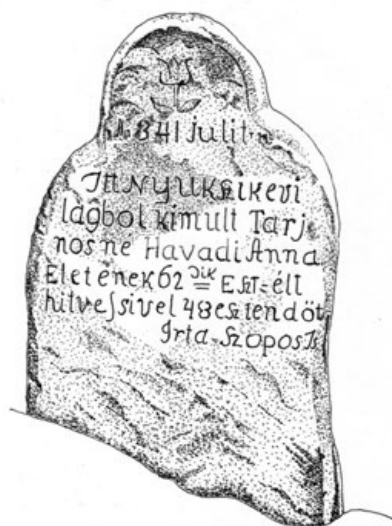 1841 julil
ITT NYUKSzIK e vi
lágbol kimult Tarj
nos ne Havadi Anna
Eletének 62 dik Eszt=élt
hitvessivel 48 esztendöt
Irta. Szopos Ts